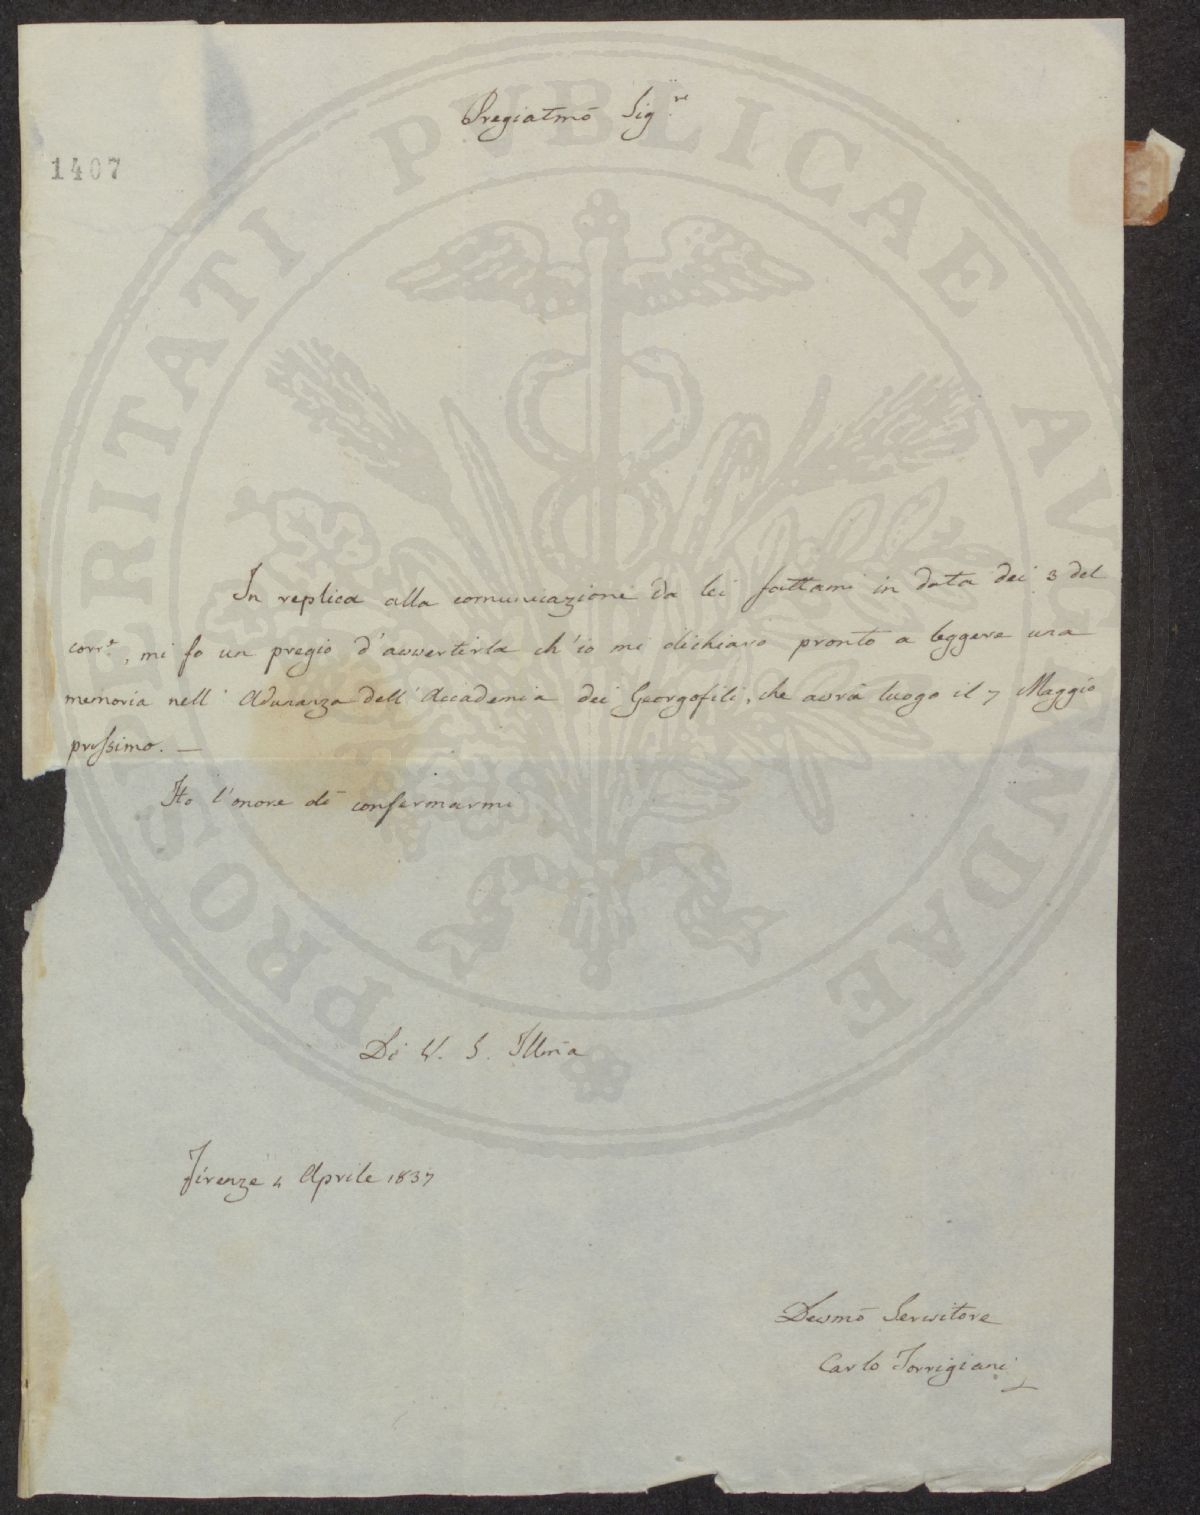 Pregiatmō Sig.re
1407
In replica alla comunicazione da lei fattami in data dei 3 del
corr.e, mi fo un pregio d'avvertirla ch'io mi dichiaro pronto a leggere una
memoria nell' Adunanza dell' Accademia dei Georgofili, che avrà luogo il 7 Maggio
prossimo. —
Ho l'onore di confermarmi
Di V. S. Illm̄a
Firenze 4 Aprile 1837
Devmō Servitore
Carlo Torrigiani
PROSPERITATI PVBLICAE AVGENDAE